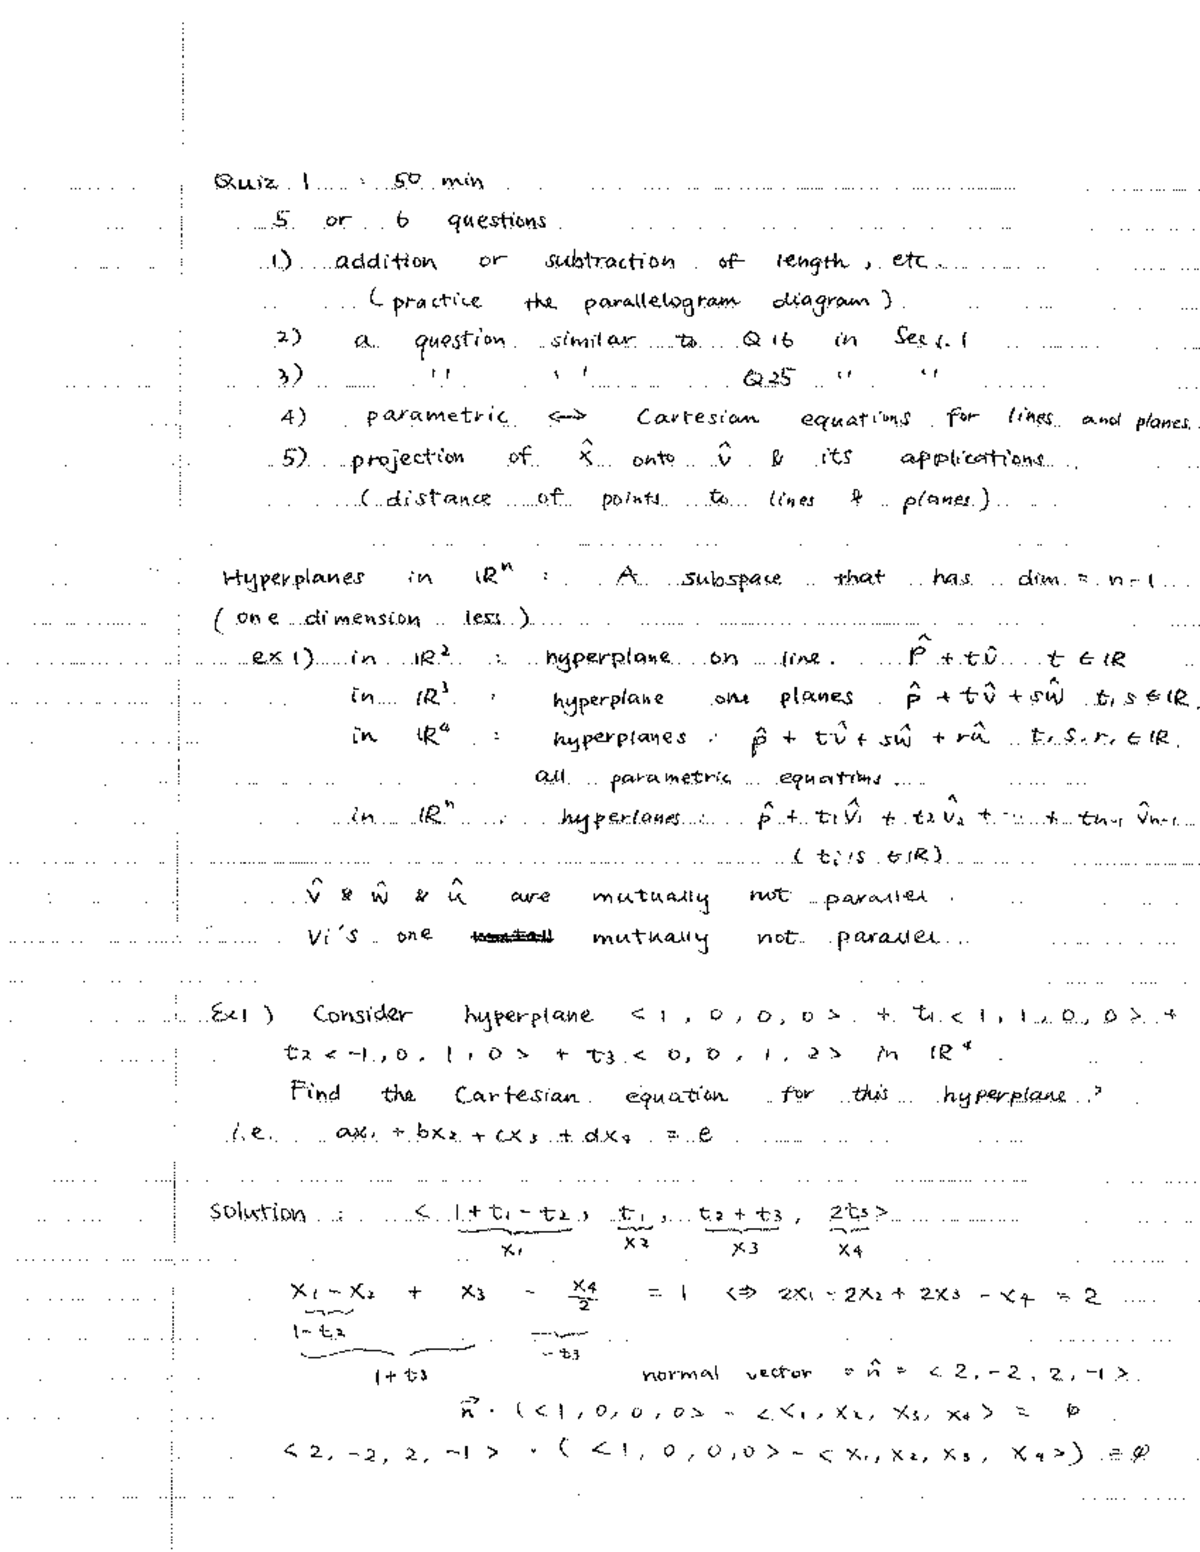 Quiz 1 : 50 min
5 or 6 questions
1) addition or subtraction of length, etc.
(practice the parallelogram diagram)
2) a question similar to Q16 in Sec 1.1
3) " " Q25 " "
4) parametric <-> Cartesian equations for lines and planes.
5) projection of x̂ onto v̂ & its applications
(distance of points to lines & planes)
Hyperplanes in ℝⁿ : A subspace that has dim = n-1
(one dimension less)
ex 1) in ℝ² : hyperplane on line. p̂ + tv̂ t ∈ ℝ
in ℝ³ : hyperplane one planes p̂ + tv̂ + sŵ t, s ∈ ℝ.
in ℝ⁴ : hyperplanes : p̂ + tv̂ + sŵ + rû t, s, r, ∈ ℝ.
all parametric equations.
in ℝⁿ : hyperlanes : p̂ + t₁v̂₁ + t₂v̂₂ + ... + tₙ₋₁ v̂ₙ₋₁
(tᵢ's ∈ ℝ)
v̂ & ŵ & û are mutually not parallel.
Vi's one mutually not parallel.
Ex1) Consider hyperplane <1, 0, 0, 0> + t₁<1, 1, 0, 0> +
t₂<-1, 0, 1, 0> + t₃<0, 0, 1, 2> in ℝ⁴.
Find the Cartesian equation for this hyperplane?
i.e. ax₁ + bx₂ + cx₃ + dx₄ = e
solution : < 1+t₁-t₂, t₁, t₂+t₃, 2t₃>
x₁ x₂ x₃ x₄
x₁ - x₂ + x₃ - x₄/2 = 1 <=> 2x₁ - 2x₂ + 2x₃ - x₄ = 2
1-t₂
-t₃
1+t₃ normal vector = n̂ = <2, -2, 2, -1>.
n⃗ · (<1, 0, 0, 0> - <x₁, x₂, x₃, x₄> = 0
<2, -2, 2, -1> · (<1, 0, 0, 0> - <x₁, x₂, x₃, x₄>) = 0